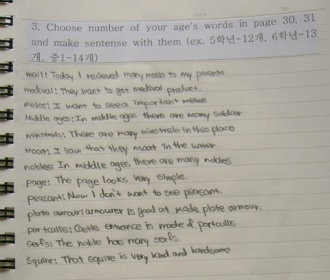 3. Choose number of your age's words in page 30, 31
and make sentense with them (ex. 5학년-12개, 6학년-13
개, 중1-14개)
mail: Today I recieved many mails to my parents
medival: They want to get medival product.
melee: I want to see a important melee
Middle ages: In middle ages there are many soldier
minstrels: There are many minstrels in this place
moat: I saw that they moat in the water
nobles: In middle ages there are many nobles
page: The page looks very simple.
peasant: Now I don't want to see peasant.
plate armour: armourer is good at made plate armour.
portcullis: Castle entrance is made of portcullis
serfs: The noble has many serfs.
Squire: That squire is very kind and handsome